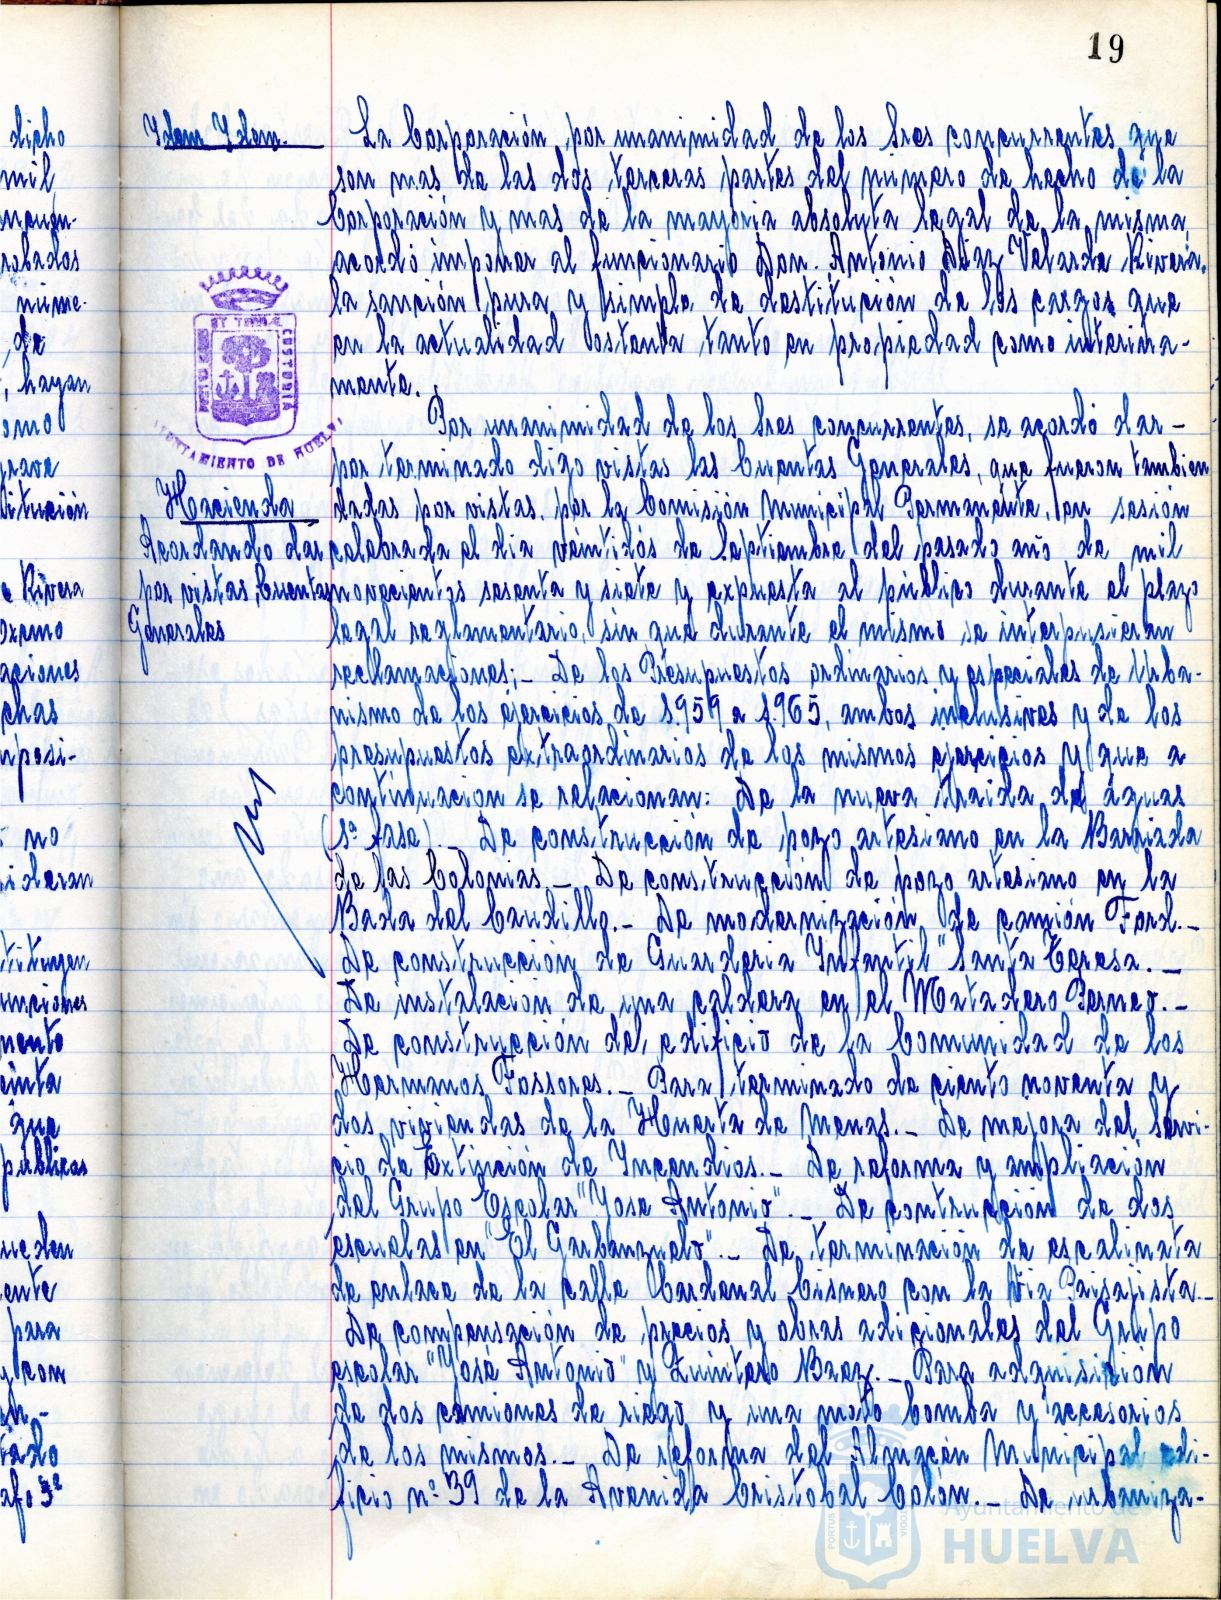 19
dicho
mil
nume-
de
, hayan
omo
grave
titución
e Rivera
oximo
aciones
chas
mposi-
no
ideran
tituyen
unciones
mento
que
publicas
ueden
ente
para
y con
tado
afo 3º
Idem Idem.
La Corporación, por unanimidad de los Sres concurrentes que
son mas de las dos terceras partes del número de hecho de la
Corporación y mas de la mayoria absoluta legal de la misma,
acordó imponer al funcionario Don. Antonio Diaz Velarde Rivera,
la sanción pura y simple de destitución de los cargos que
en la actualidad ostenta, tanto en propiedad como interina-
mente.
AYUNTAMIENTO DE HUELVA
Hacienda
Acordando dar
por vistas, Cuentas
Generales
Por unanimidad de los Sres concurrentes, se acordó dar -
por terminado digo vistas las Cuentas Generales, que fueron tambien
dadas por vistas, por la Comisión Municipal Permanente, en sesión
celebrada el dia veintidós de Septiembre del pasado año de mil
novecientos sesenta y siete y expuesta al público durante el plazo
legal reglamentario, sin que durante el mismo se interpusieran
reclamaciones; - De los Presupuestos ordinarios y especiales de Urba-
nismo de los ejercicios de 1.959 a 1.965, ambos inclusives y de los
presupuestos extraordinarios de los mismos ejercicios y que a
continuación se relacionan: De la nueva traida de águas
(1ª fase). - De construcción de pozo artesiano en la Barriada
de las Colonias. - De construcción de pozo artesiano en la
Bada del Caudillo. - De modernización de camión Ford. -
De construcción de Guarderia Infantil "Santa Teresa. -
De instalación de una caldera en el Matadero Perneo. -
De construcción del edificio de la Comunidad de los
Hermanos Fossores. - Para terminado de ciento noventa y
dos viviendas de la Huerta de Menas. - De mejora del Servi-
cio de Extinción de Incendios. - De reforma y ampliación
del Grupo Escolar "Jose Antonio". - De contrucción de dos
escuelas en "El Garbanzuelo". - De terminación de escalinata
de enlace de la calle Cardenal Cisnero con la Via Paisajista. -
De compensación de precios y obras adicionales del Grupo
escolar "José Antonio" y Quintero Baez. - Para adquisición
de dos camiones de riego y una moto bomba y accesorios
de los mismos. - De reforma del Almacén Municipal edi-
ficio nº 39 de la Avenida Cristobal Colón. - De urbaniza-
Ayuntamiento de
HUELVA